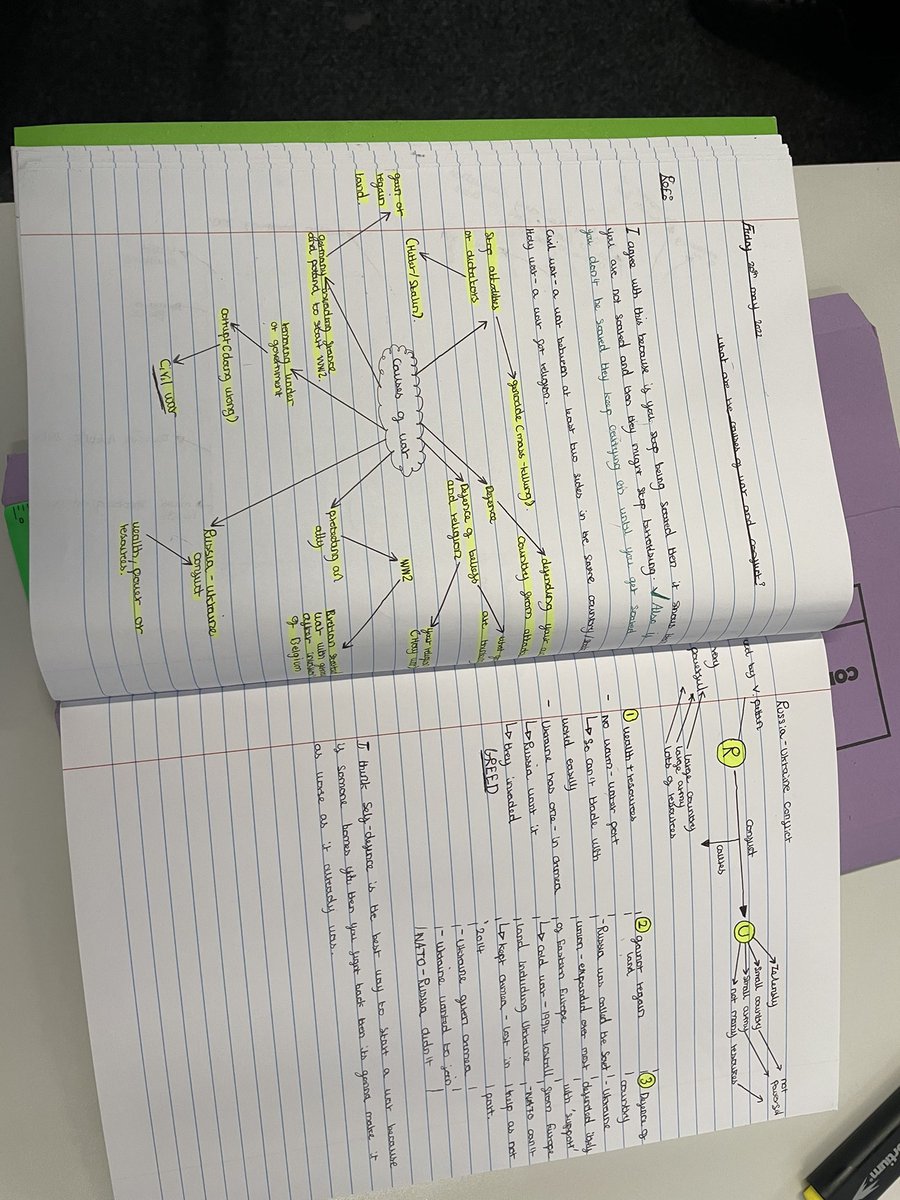 Friday 20th may 2022
What are the causes of war and conflict?
RofO
I agree with this because if you stop being scared then it show
you are not scared and then they might stop barrothing. ✓ Also if
you don't be scared they keep carrying on until you get scared
Civil war - a war between at least two sides in the same country/
Holy war - a war for religion.
Stop atrocities
or dictators
(Hitler/Stalin).
genocide (mass-killing).
gain or
regain
land.
Germany invading france
and poland to start WW2
Causes of war
Defence
defending your
country from attack
Defence of beliefs
and religion
what
are
your relig
(Holy
removing ruler
or government
corrupt (doing wrong)
Civil war
protecting an
ally
WW2
Britian
war with
after
of Belgium
Russia - ukraine
conflict
wealth, power or
resources.
Russia - Ukraine Conflict
by V. putin
very
powerful
R
large country
large army
lots of resources
conflict
causes
U
Zelensky
small country
small army
not many resources
not
powerful
① wealth + resources
- no warm - water port
↳ so can't trade with
world easily
- Ukraine has one - in crimea
↳ Russia want it
↳ they invaded
GREED
② gain or regain
land
- Russia was called the Soviet
union - expanded over most
of Eastern Europe
↳ cold war - 1991 lost all
land including Ukraine
↳ kept crimea - lost in
2014
- Ukraine given crimea
- ukraine wanted to join
NATO - Russia didn't
③ Defence of
country
- Ukraine
defended itself
with 'support'
from Europe
- NATO can't
help as not
part.
I think Self-defence is the best way to start a war because
if someone harmes you then you fight back then its gonna make it
as worse as it already was.